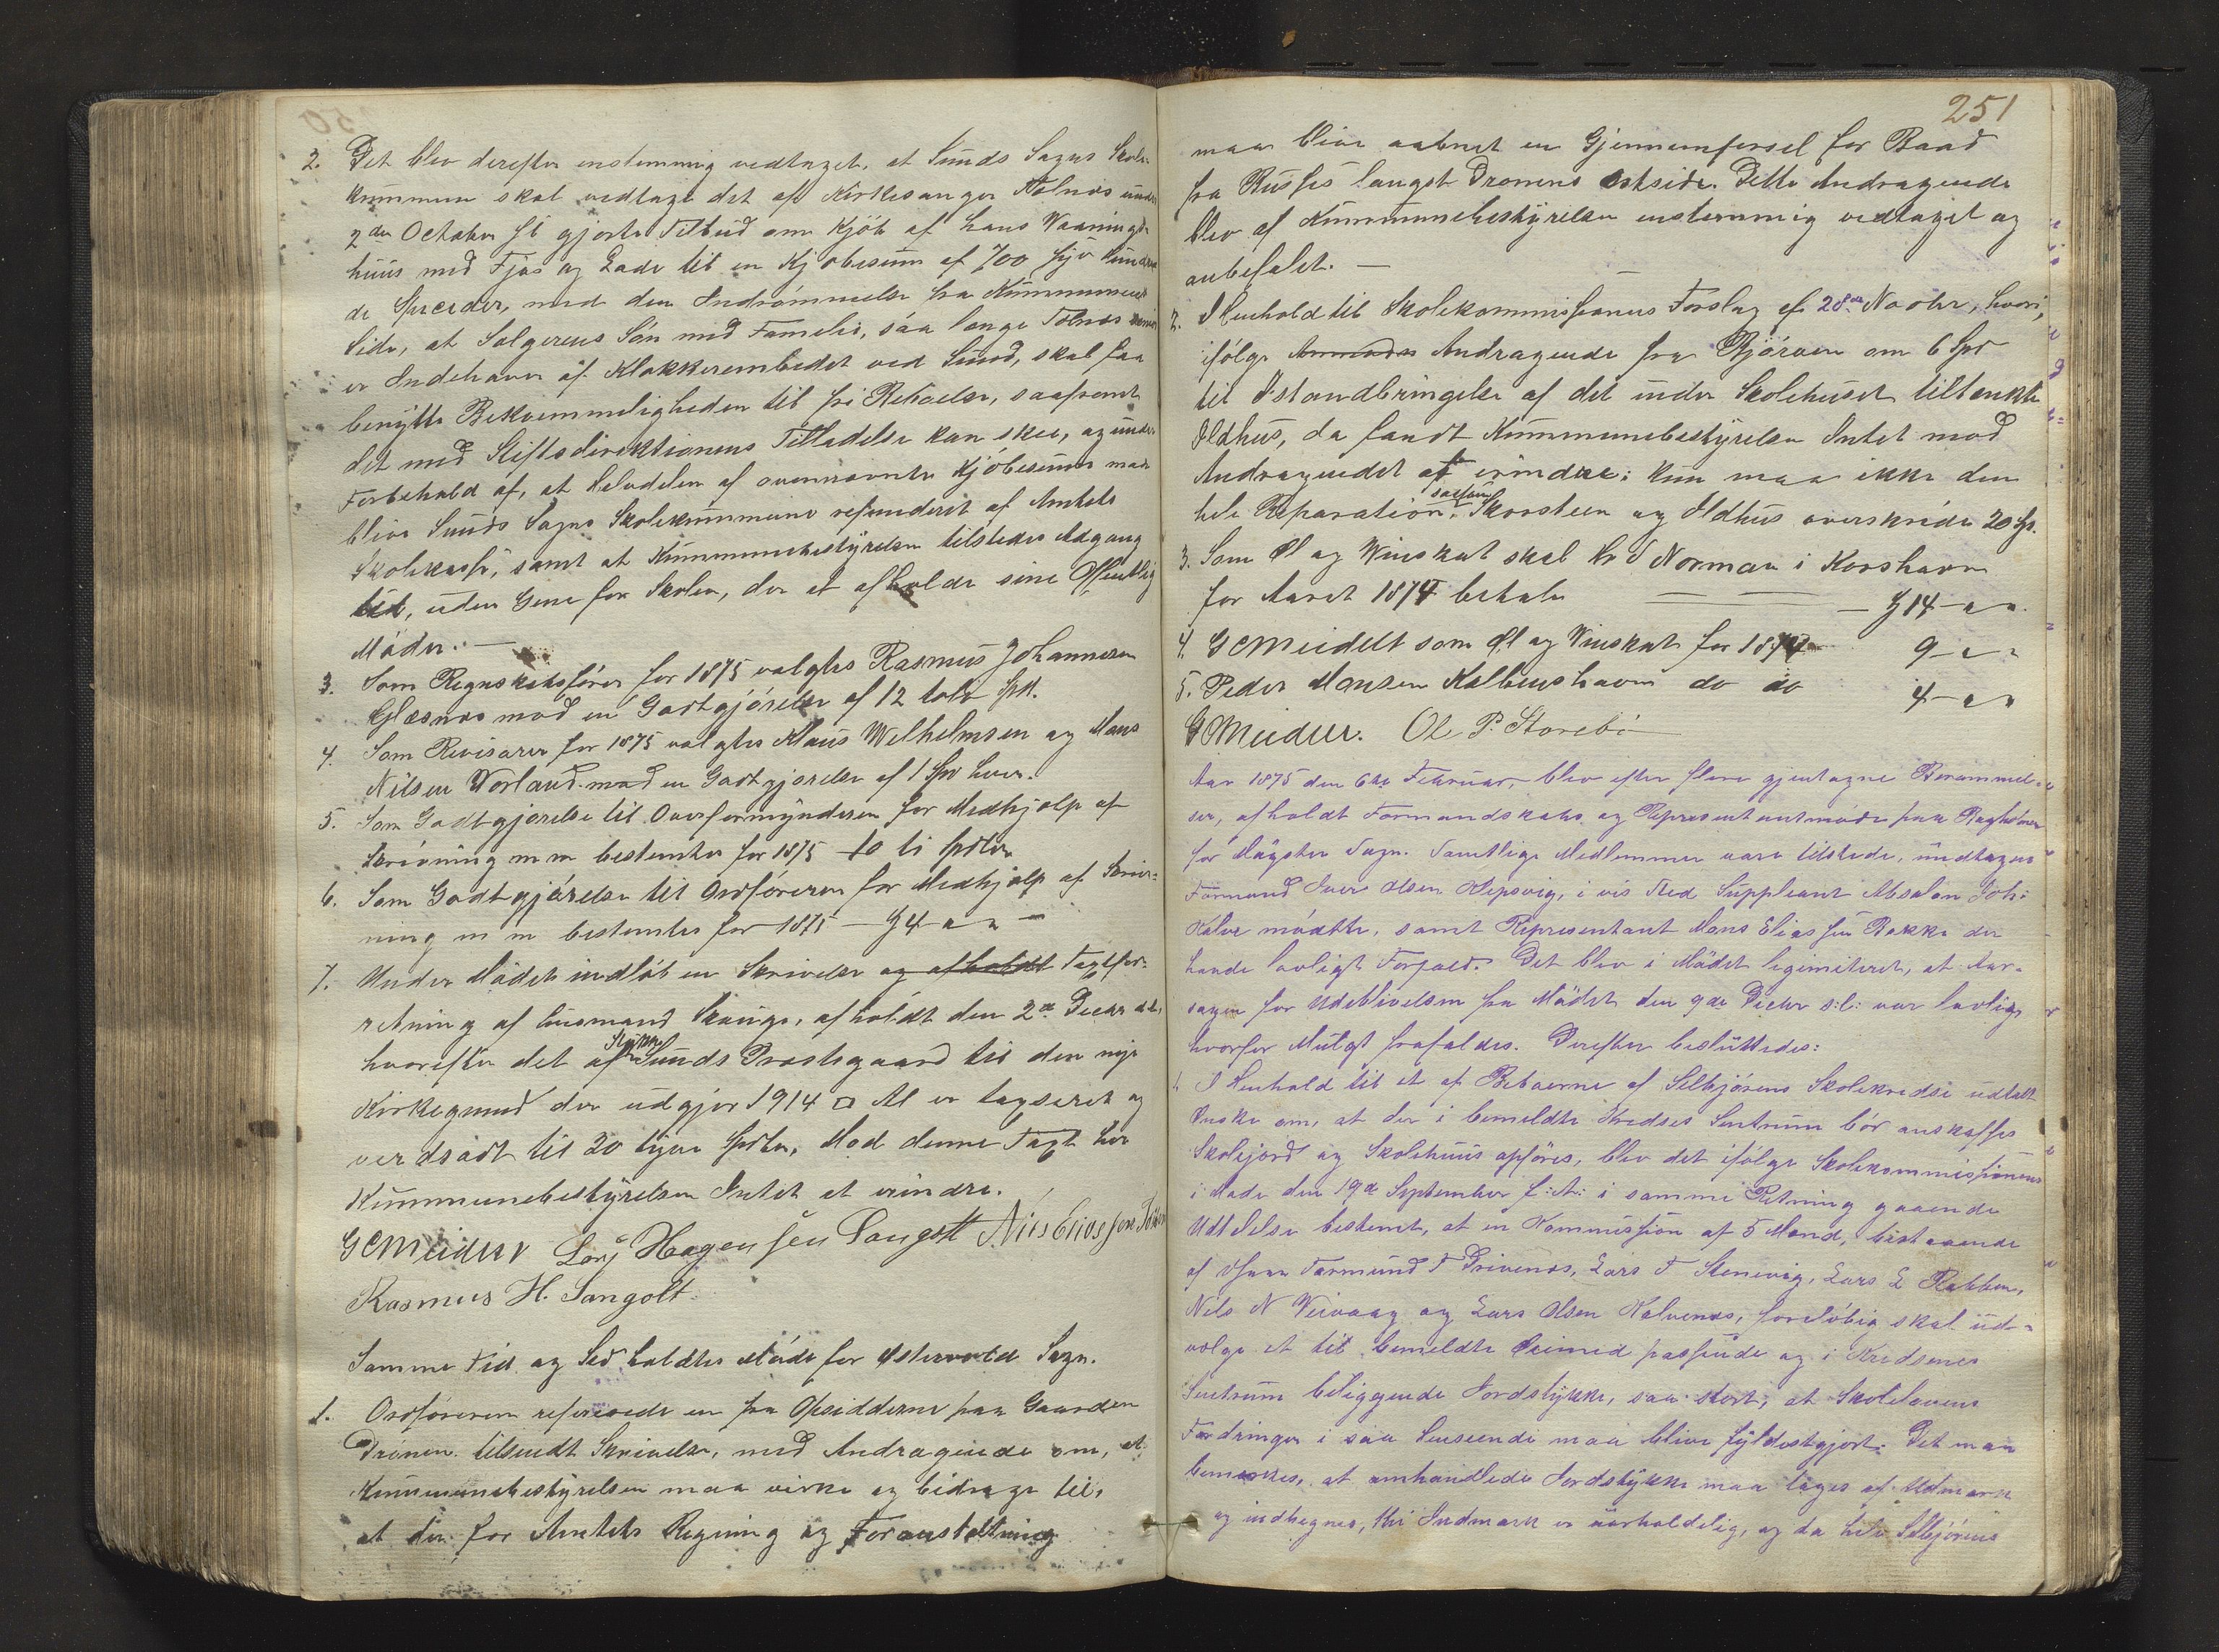 2. Det blev derefter enstemmig vedtaget, at Sunds Sogns Skole-
kummune skal vedtage det af Kirkesanger Tolnæs under
2den October sl gjorte Tilbud om Kjöb af hans Waanings-
huus med Fjøs og Lade til en Kjøbesum af 700 syv Hundre
de Specider, med den Indrömmelse fra Kummunens
Side, at Sælgerens Sön med Familie, saa længe Tolnæs
er Indehaver af Klokkerembedet ved Sund, skal faa
benytte Bekvemmeligheden til fri Beboelse, saafremt
det med Stiftsdirektionens Tilladelse kan skee, og under
Forbehold af, at Halvdelen af ovennævnte Kjöbesum maa
blive Sunds Sogns Skolekummune refunderet af Amtets
Skolekasse, samt at Kummunebestyrelsen tilstedes Adgang
til, uden Gene for Skolen, der at afholde sine Offentlig
Möder. —
3. Som Regnskabsfører for 1875 valgtes Rasmus Johannesen
Glæsnæs mod en Godtgjörelse af 12 tolv Spd.
4. Som Revisorer for 1875 valgtes Klaus Wilhelmsen og Mons
Nilsen Vorland mod en Godtgjørelse af 1 Spd hver.
5. Som Godtgjørelse til Overformynderen for Medhjælp af
Skrivning m m bestemtes for 1875 10 ti Spdlr
6. Som Godtgjörelse til Ordföreren for Medhjælp af Skriv-
ning m m bestemtes for 1875 — 4 " "
7. Under Mödet indløb en Skrivelse og afholdt Taxtfor-
retning af Lensmand Skauge, afholdt den 2de Decbr d.A.
hvorefter det af Stykke Sunds Præstegaard til den nye
Kirkegrund der udgjør 1914 □ Al er taxeret og
verdsadt til 20 tyve Spdlr. Mod denne Taxt har
Kummunebestyrelsen Intet at erindre.
G C Meidell Lars Hagensen Sangolt Nils Eliassen
Rasmus H. Sangolt
Samme Tid og Sted holdtes Möde for Østervold Sogn.
1. Ordföreren refererede en fra Opsidderne paa Gaarden
Drönen tilsendt Skrivelse, med Andragende om, at
Kummunebestyrelsen maa virke og bidrage til,
at der for Amtets Regning og Foranstaltning
251
maa blive aabnet en Gjennemførsel for Baad
fra langst Drønens Østside. Dette Andragende
blev af Kummunebestyrelsen enstemmig vedtaget og
anbefalet. —
2. I Henhold til Skolekommissionens Forslag af 28de Novbr, hvori,
ifölge Andragende fra Björöen om 6 Spd
til Istandbringelse af det under Skolehuset tiltænkte
Ildhus, da fandt Kummunebestyrelsen Intet mod
Andragendet at erindre; kun maa ikke den
hele Reparation, saasom Skorsteen og Ildhus overskride 20 Sp.
3. Som Øl og Vinskat skal Hr O Norman i Korshavn
for Aaret 1874 betale — — 14 " "
4. G C Meidell som Øl og Vinskat for 1874 9 " "
5. Peder Monsen Kalbenshavn do do 4 " "
G C Meidell. Ole P. Storebö
Aar 1875 den 6te Februar, blev efter flere gjentagne Berammel-
ser, afholdt Formandskabs og Representantmöde paa Bagholmen
for Møgster Sogn. Samtlige Medlemmer vare tilstede, undtagen
Formand Iver Olsen Hepsøvig, i vis Sted Suppleant Absalon Joh:
Kalve mödte, samt Representant Mons Eliassen Bakke der
havde lovligt Forfald. Det blev i Mödet legimiteret, at Aar-
sagen for Udeblivelsen fra Mödet den 9de Decbr s: l: var lovlig
hvorfor Mulgt frafaldes. Derefter besluttedes:
1. I Henhold til et af Beboerne af Selbjörens Skolekredse udtalt
Ønske om, at der i bemeldte Kredses Sentrum bör anskaffes
Skolejord og Skolehuus opföres, blev det ifölge Skolekommissionens
i Møde den 19de September f: A: i samme Retning gaaende
Udtalelse bestemt, at en Kommission af 5 Mand, bestaaende
af Hans Formand T Drivenæs, Lars T Stenevig, Lars L Bakken,
Nils N Veivaag og Lars Olsen Kalvenæs, forelöbig skal ud-
vælge et til bemeldte Øiemed passende og i Kredsenes
Sentrum beliggende Jordstykke, saa stort, at Skolelovens
Fordringer i saa Henseende maa blive fyldestgjort. Det maa
bemerkes, at omhandlede Jordstykke maa tages af Udmark
og indhegnes, thi Indmark er uerholdelig, og da hele Selbjörens